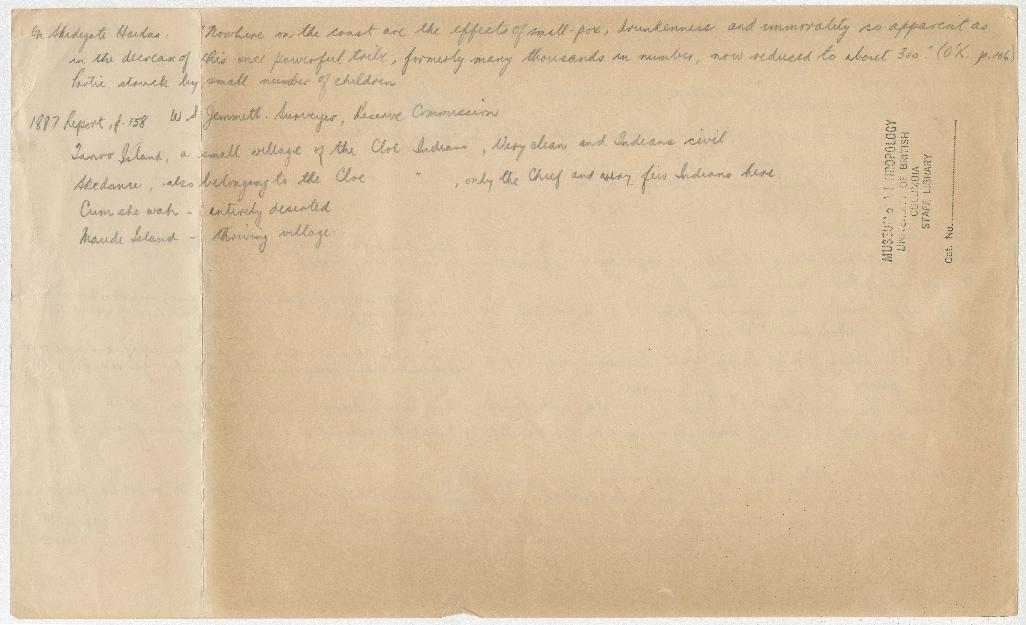 On Skidegate Haidas: "Nowhere on the coast are the effects of small-pox, drunkenness and immorality so apparent as
in the decrease of this once powerful tribe, formerly many thousands in number, now reduced to about 300." (O'K. p.106)
Portie struck by small number of children
1887 Report, p. 158 W S Jemmett. Surveyor, Reserve Commission
Tanoo Island, a small village of the Cloe Indians, Very clean and Indians civil.
Skedance, also belonging to the Cloe " , only the Chief and very few Indians here.
Cum she wah - entirely deserted
Maude Island - thriving village.
MUSEUM OF ANTHROPOLOGY
UNIVERSITY OF BRITISH
COLUMBIA
STAFF LIBRARY
Cat. No.